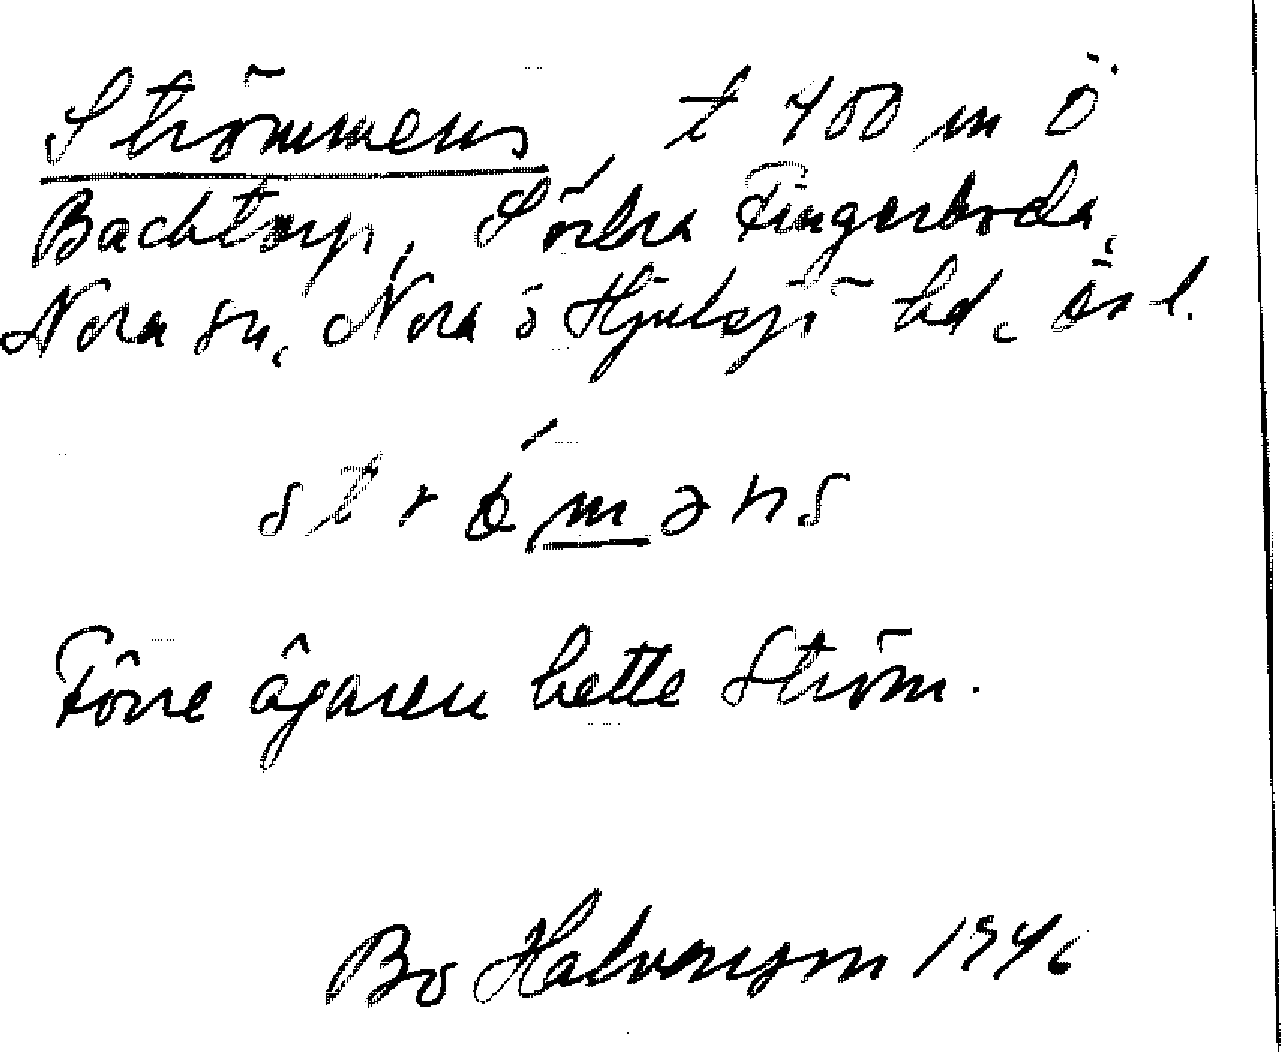 Strömmens, t 400 m Ö
Backtorp, Södra Fingerboda,
Nora sn, Nora o Hjulsjö hd, ös l.
strǿmǝns
Förre ägaren hette Ström.
Bo Halvarsson 1946